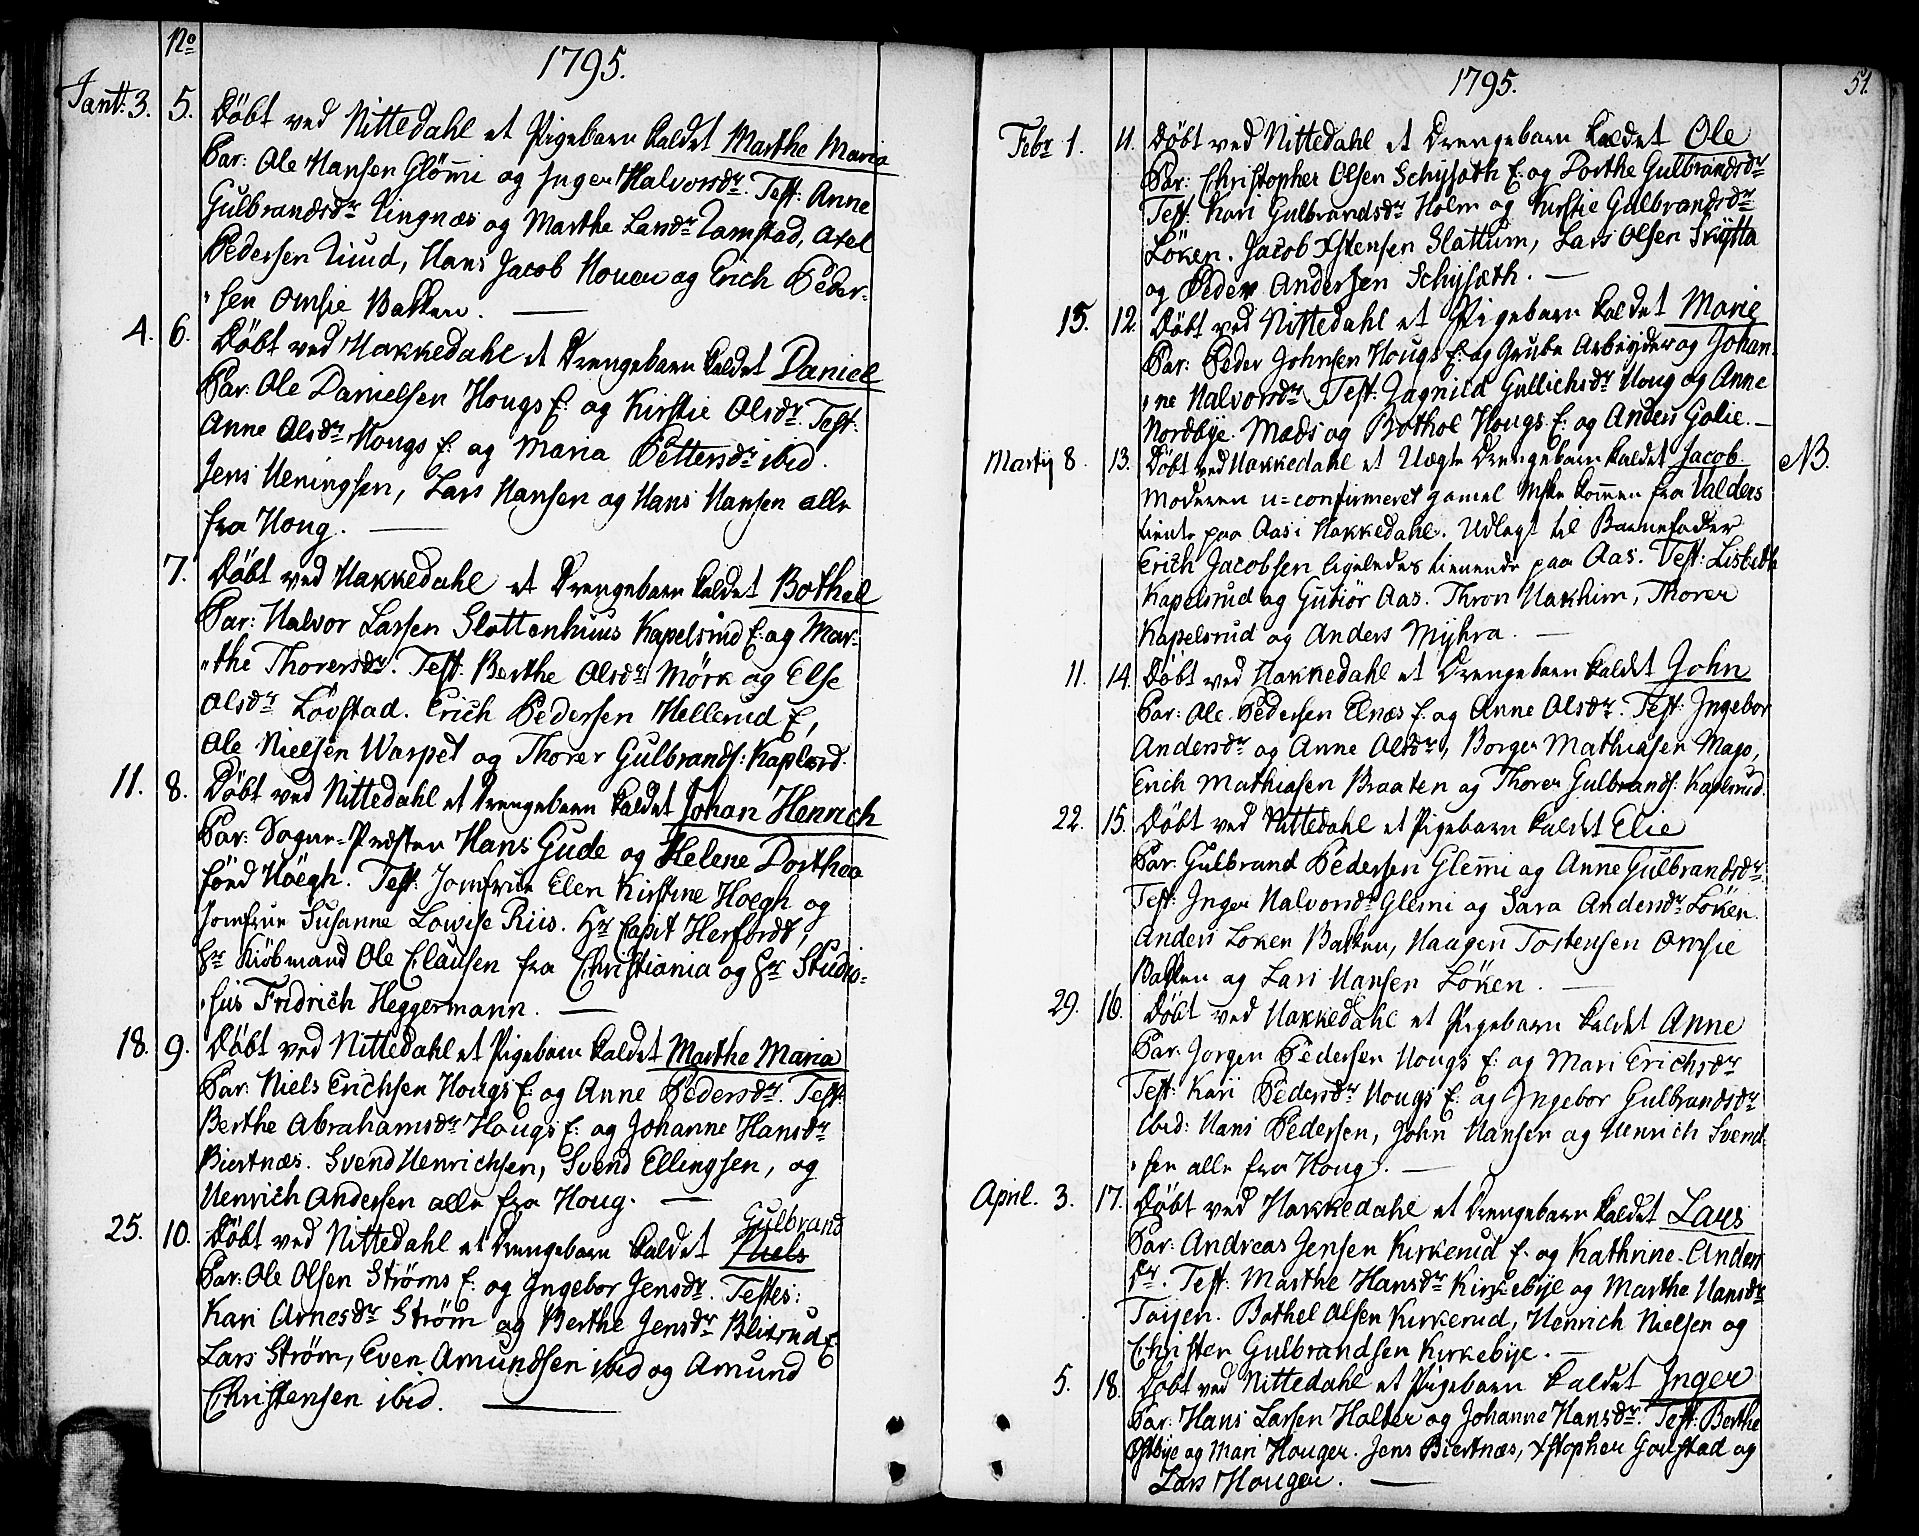 No
1795.
Janu: 3. 5. Döbt ved Nittedahl et Pigebarn kaldet Marthe Maria
Par: Ole Hansen Glömi og Inger Halvorsdr. Test: Anne
Gulbrandsdr Tingnæs og Marthe Landr Tamstad, Axel
Pedersen Tiud, Hans Jacob Houer og Erich Peder-
"sen Omsie Bakken.
4. 6. Döbt ved Hakkedahl et Drengebarn kaldet Daniel
Par: Ole Danielsen Hougs E: og Kirstie Olsdr. Test:
Anne Olsdr Hougs E: og Maria Pettersdr ibid.
Jens Heningsen, Lars Hansen og Hans Hansen alle
fra Houg.
7. Döbt ved Hakkedahl et Drengebarn kaldet Bothel
Par: Halvor Larsen Slottenhuus Kapelsrud E: og Mar-
"the Thorersdr. Test: Berthe Olsdr Mörk og Else
Olsdr Lövstad. Erich Pedersen Hellerud E,
Ole Nielsen Warpet og Thorer Gulbrands: Kaplsrd.
11. 8. Döbt ved Nittedahl et Drengebarn kaldet Johan Henrich
Par: Sogne-Præsten Hans Gude og Helene Dorthea
föed Höegh. Test: Jomfrue Elen Kirstine Hoegh og
Jomfrue Susanne Lowise Riis. Hr Capit Herfordt,
Hr Kiöbmand Ole Clausen fra Christiania og Hr Studio-
"sus Fridrich Heggermann.
18. 9. Döbt ved Nittedahl et Pigebarn kaldet Marthe Maria
Par: Niels Erichsen Hougs E: og Anne Pedersdr. Test:
Berthe Abrahamsdr Hougs E: og Johanne Hansdr
Biertnæs. Svend Henrichsen, Svend Ellingsen, og
Henrich Andersen alle fra Houg.
Gulbrand
25. 10. Döbt ved Nittedahl et Drengebarn kaldet Niels
Par: Ole Olsen Ströms E: og Ingebor Jensdr. Testes:
Kari Arnesdr Ström og Berthe Jensdr Blitrud E
Lars Ström, Even Amundsen ibid og Amund
Christensen ibid.
51.
1795.
Febr 1. 11. Döbt ved Nittedahl et Drengebarn kaldet Ole
Par: Christopher Olsen Schysæth E: og Dorthe Gulbrandsdr
Test: Kari Gulbrandsdr Holm og Kirstie Gulbrandsdr
Löken. Jacob Xstensen Slattum, Lars Olsen Skÿtta
og Peder Andersen Schysæth.
15. 12. Döbt ved Nittedahl et Pigebarn kaldet Marie
Par: Peder Johnsen Hougs E: og Grube Arbeyder og Johan-
"ne Halvorsdr. Test: Ragnild Gullichsdr Houg og Anne
Nordbye. Mads og Bothol Hougs E: og Anders Golie.
Martij 8. 13. Döbt ved Hakkedahl et Uægte Drengebarn kaldet Jacob. NB.
Moderen u=confirmeret gamel Mske kommen fra Valders
tiente paa Aas i Hakkedahl. Udlagt til Barnefader
Erich Jacobsen ligeledes tienende paa Aas. Test: Lisbeth
Kapelsrud og Gubiör Aas. Thron Hakhim, Thorer
Kapelsrud og Anders Myhra.
11. 14. Döbt ved Hakkedahl et Drengebarn kaldet John
Par: Ole Pedersen Elnæs E: og Anne Olsdr. Test: Ingebor
Andersdr og Anne Olsdr, Borger Mathiasen Mago,
Erich Mathiasen Braaten og Thorer Gulbrands: Kapelsrud.
22. 15. Döbt ved Nittedahl et Pigebarn kaldet Elie
Par: Gulbrand Pedersen Glemi og Anne Gulbrandsdr.
Test: Inger Halvorsdr Glemi og Sara Andersdr Löken.
Anders Loken Bakken, Haagen Tostensen Omsie
Bakken og Lars Hansen Löken.
29. 16. Döbt ved Hakkedahl et Pigebarn kaldet Anne
Par: Jorgen Pedersen Hougs E: og Mari Erichsdr
Test: Kari Pedersdr Hougs E: og Ingebor Gulbrandsdr
ibid: Hans Pedersen, John Hansen og Henrich Svend-
"sen alle fra Houg.
April. 3. 17. Döbt ved Hakkedahl et Drengebarn kaldet Lars
Par: Andreas Jensen Kirkerud E: og Kathrine Anders
Dr. Test: Marthe Hansdr Kirkebye og Marthe Hansdr
Toijen. Bothel Olsen Kirkerud, Henrich Nielsen og
Christen Gulbrandsen Kirkebije.
5. 18. Döbt ved Nittedahl et Pigebarn kaldet Inger
Par: Hans Larsen Holter og Johanne Hansdr. Test: Berthe
Ostbye og Mari Houger. Jens Biertnæs, Xstopher Gorstad og
Lars Houger.